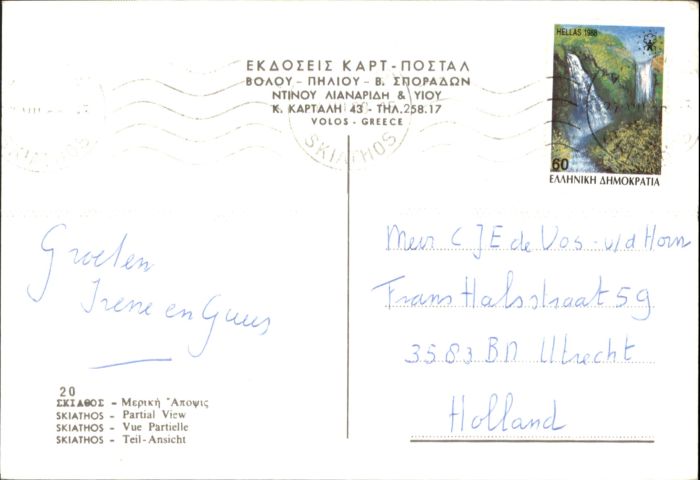 ΕΚΔΟΣΕΙΣ ΚΑΡΤ-ΠΟΣΤΑΛ
ΒΟΛΟΥ - ΠΗΛΙΟΥ - Β. ΣΠΟΡΑΔΩΝ
ΝΤΙΝΟΥ ΛΙΑΝΑΡΙΔΗ & ΥΙΟΥ
Κ. ΚΑΡΤΑΛΗ 43 - ΤΗΛ.258.17
VOLOS - GREECE
SKIATHOS
SKIATHOS
HELLAS 1988
60
ΕΛΛΗΝΙΚΗ ΔΗΜΟΚΡΑΤΙΑ
Groeten
Irene en Guus
20
ΣΚΙΑΘΟΣ - Μερική Ἄποψις
SKIATHOS - Partial View
SKIATHOS - Vue Partielle
SKIATHOS - Teil-Ansicht
Mevr C J E de Vos - v/d Horn
Frans Halsstraat 59
3583 BN Utrecht
Holland